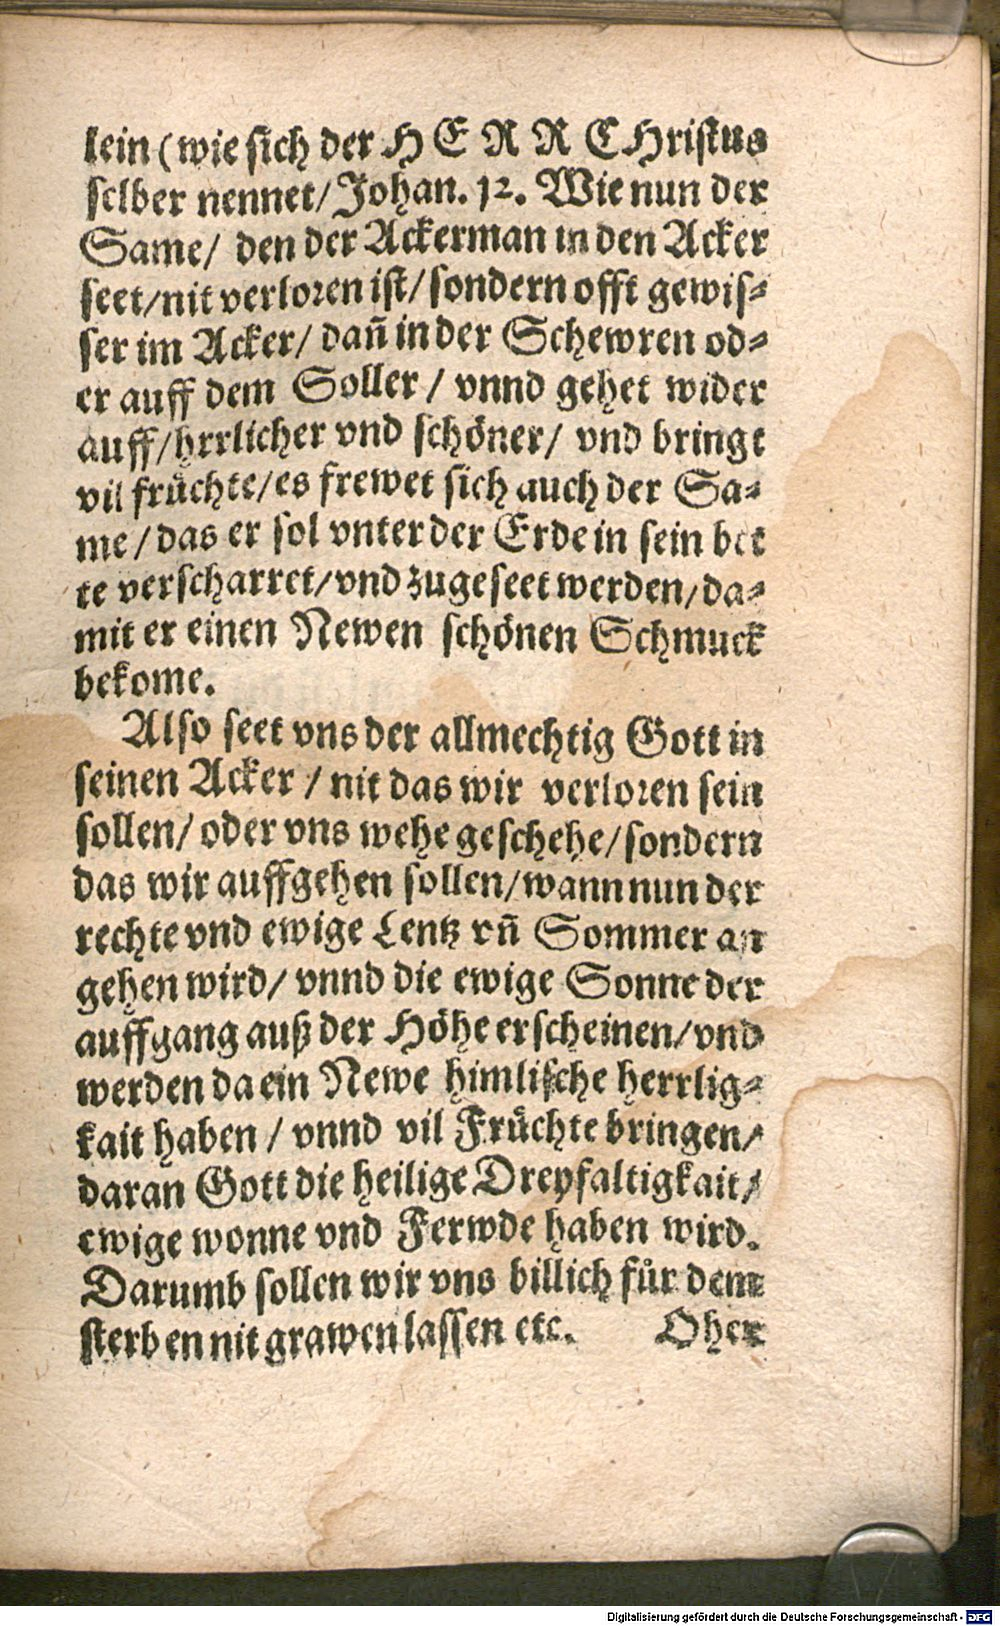 lein (wie sich der HERR CHristus
selber nennet/ Johan. 12. Wie nun der
Same/ den der Ackerman in den Acker
seet/ nit verloren ist/ sondern offt gewis⸗
ser im Acker/ dañ in der Schewren od⸗
er auff dem Soller / vnnd gehet wider
auff/ hrrlicher vnd schöner/ vnd bringt
vil früchte/ es frewet sich auch der Sa⸗
me/ das er sol vnter der Erde in sein bet
te verscharret/ vnd zugeseet werden/ da⸗
mit er einen Newen schönen Schmuck
bekome.
Also seet vns der allmechtig Gott in
seinen Acker / nit das wir verloren sein
sollen/ oder vns wehe geschehe/ sondern
das wir auffgehen sollen/ wann nun der
rechte vnd ewige Lentz vñ Sommer an
gehen wird/ vnnd die ewige Sonne der
auffgang auß der Höhe erscheinen/ vnd
werden da ein Newe himlische herrlig⸗
kait haben / vnnd vil Früchte bringen/
daran Gott die heilige Dreyfaltigkait/
ewige wonne vnd Ferwde haben wird.
Darumb sollen wir vns billich für dem
sterben nit grawen lassen etc. Oher
Digitalisierung gefördert durch die Deutsche Forschungsgemeinschaft - DFG